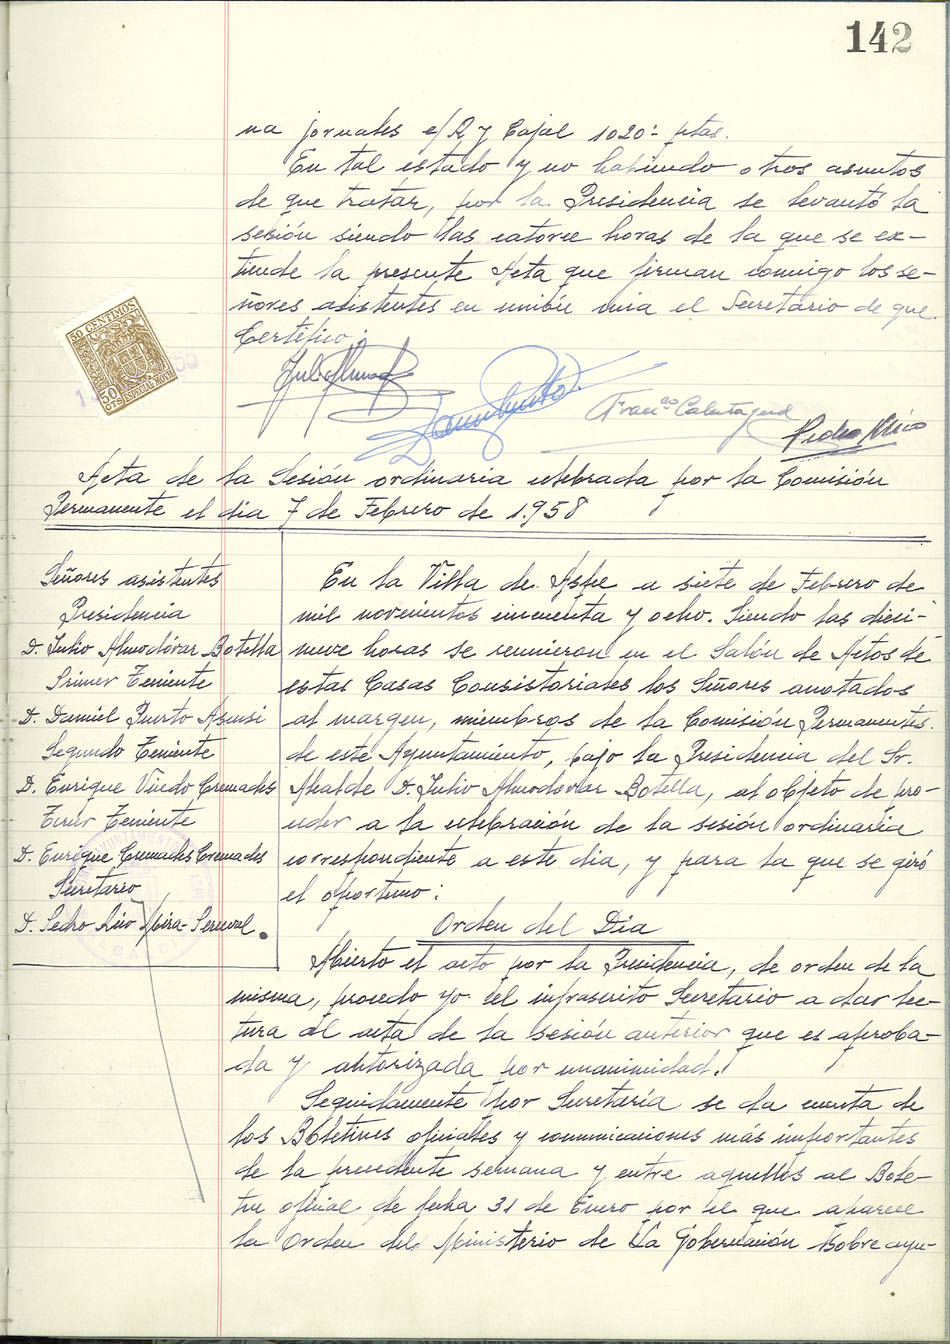 142
na jornales c/ R y Cajal 1020'- ptas.
En tal estado y no habiendo otros asuntos
de que tratar, por la Presidencia se levantó la
sesión siendo las catorce horas de la que se ex-
tiende la presente Acta que firman conmigo los se-
ñores asistentes en unión mia el Secretario de que
Certifico.
50 CENTIMOS
50
CTS ESPECIAL MOVIL
Franco Calatayud
Pedro
Acta de la Sesión ordinaria celebrada por la Comisión
Permanente el dia 7 de Febrero de 1.958
Señores asistentes
Presidencia
D. Julio Almodóvar Botella
Primer Teniente
D. Daniel Puerto Asensi
Segundo Teniente
D. Enrique Viudo Cremades
Tercer Teniente
D. Enrique Cremades Cremades
Secretario
D. Pedro Liro Mira-Perceval.
AYUNTAMIENTO
ASPE
ALCALDIA
En la Villa de Aspe a siete de Febrero de
mil novecientos cincuenta y ocho. Siendo las dieci-
nueve horas se reunieron en el Salón de Actos de
estas Casas Consistoriales los Señores anotados
al margen, miembros de la Comisión Permanentes.
de este Ayuntamiento, bajo la Presidencia del Sr.
Alcalde D. Julio Almodóvar Botella, al objeto de pro-
ceder a la celebración de la sesión ordinaria
correspondiente a este dia, y para la que se giró
el oportuno:
Orden del Dia
Abierto el acto por la Presidencia, de orden de la
misma, procedo yo el infrascrito Secretario a dar lec-
tura al acta de la sesión anterior que es aproba-
da y autorizada por unanimidad.
Seguidamente por Secretaría se da cuenta de
los Boletines oficiales y comunicaciones más importantes
de la precedente semana y entre aquellos al Bole-
tin oficial de fecha 31 de Enero por el que aparece
la Orden del Ministerio de la Gobernación sobre ayu-